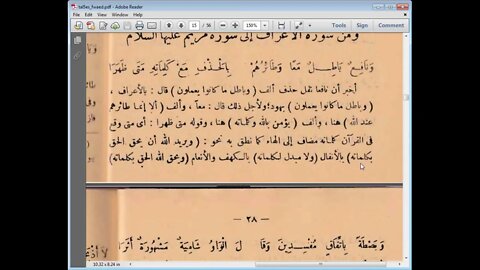 talSes_fwaed.pdf - Adobe Reader
15 / 56 150%
ومن سورة الأعراف إلى سورة مريم عليها السلام
وَنَافِعٌ بَاطِلٌ مَعًا وَطَائِرُهُمْ بِالْحَذْفِ مَعْ كَلِمَاتِهِ مَتَى ظَهَرَا
أخبر أن نافعا نقل حذف ألف (وباطل ما كانوا يعملون) قال: بالأعراف،
(وباطل ما كانوا يعملون) بهود؛ ولأجل ذلك قال: معاً، وألف (ألا إنما طائرهم
عند الله) هنا، وألف (يؤمن بالله وكلماته) هنا، وقوله متى ظهرا: أى متى وقع
فى القرآن كلماته مضاف إلى الهاء كما نطق به نحو: (ويريد الله أن يحق الحق
بكلماته) بالأنفال (ولا مبدل لكلماته) بالكهف والأنعام (ويحق الله الحق بكلماته)
— ٢٨ —
وَبَصْطَةً بِاتِّفَاقٍ مُفْسِدِينَ وَقَا لَ الْوَاوُ شَامِيَّةٌ مَشْهُورَةٌ أَثَرَا
10,32 x 8,24 in